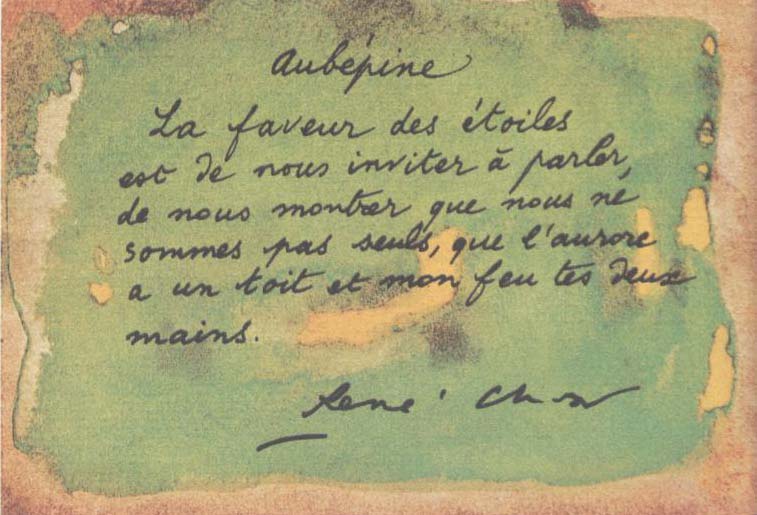 Aubépine
La faveur des étoiles
est de nous inviter à parler,
de nous montrer que nous ne
sommes pas seuls, que l'aurore
a un toit et mon feu tes deux
mains.
René Char